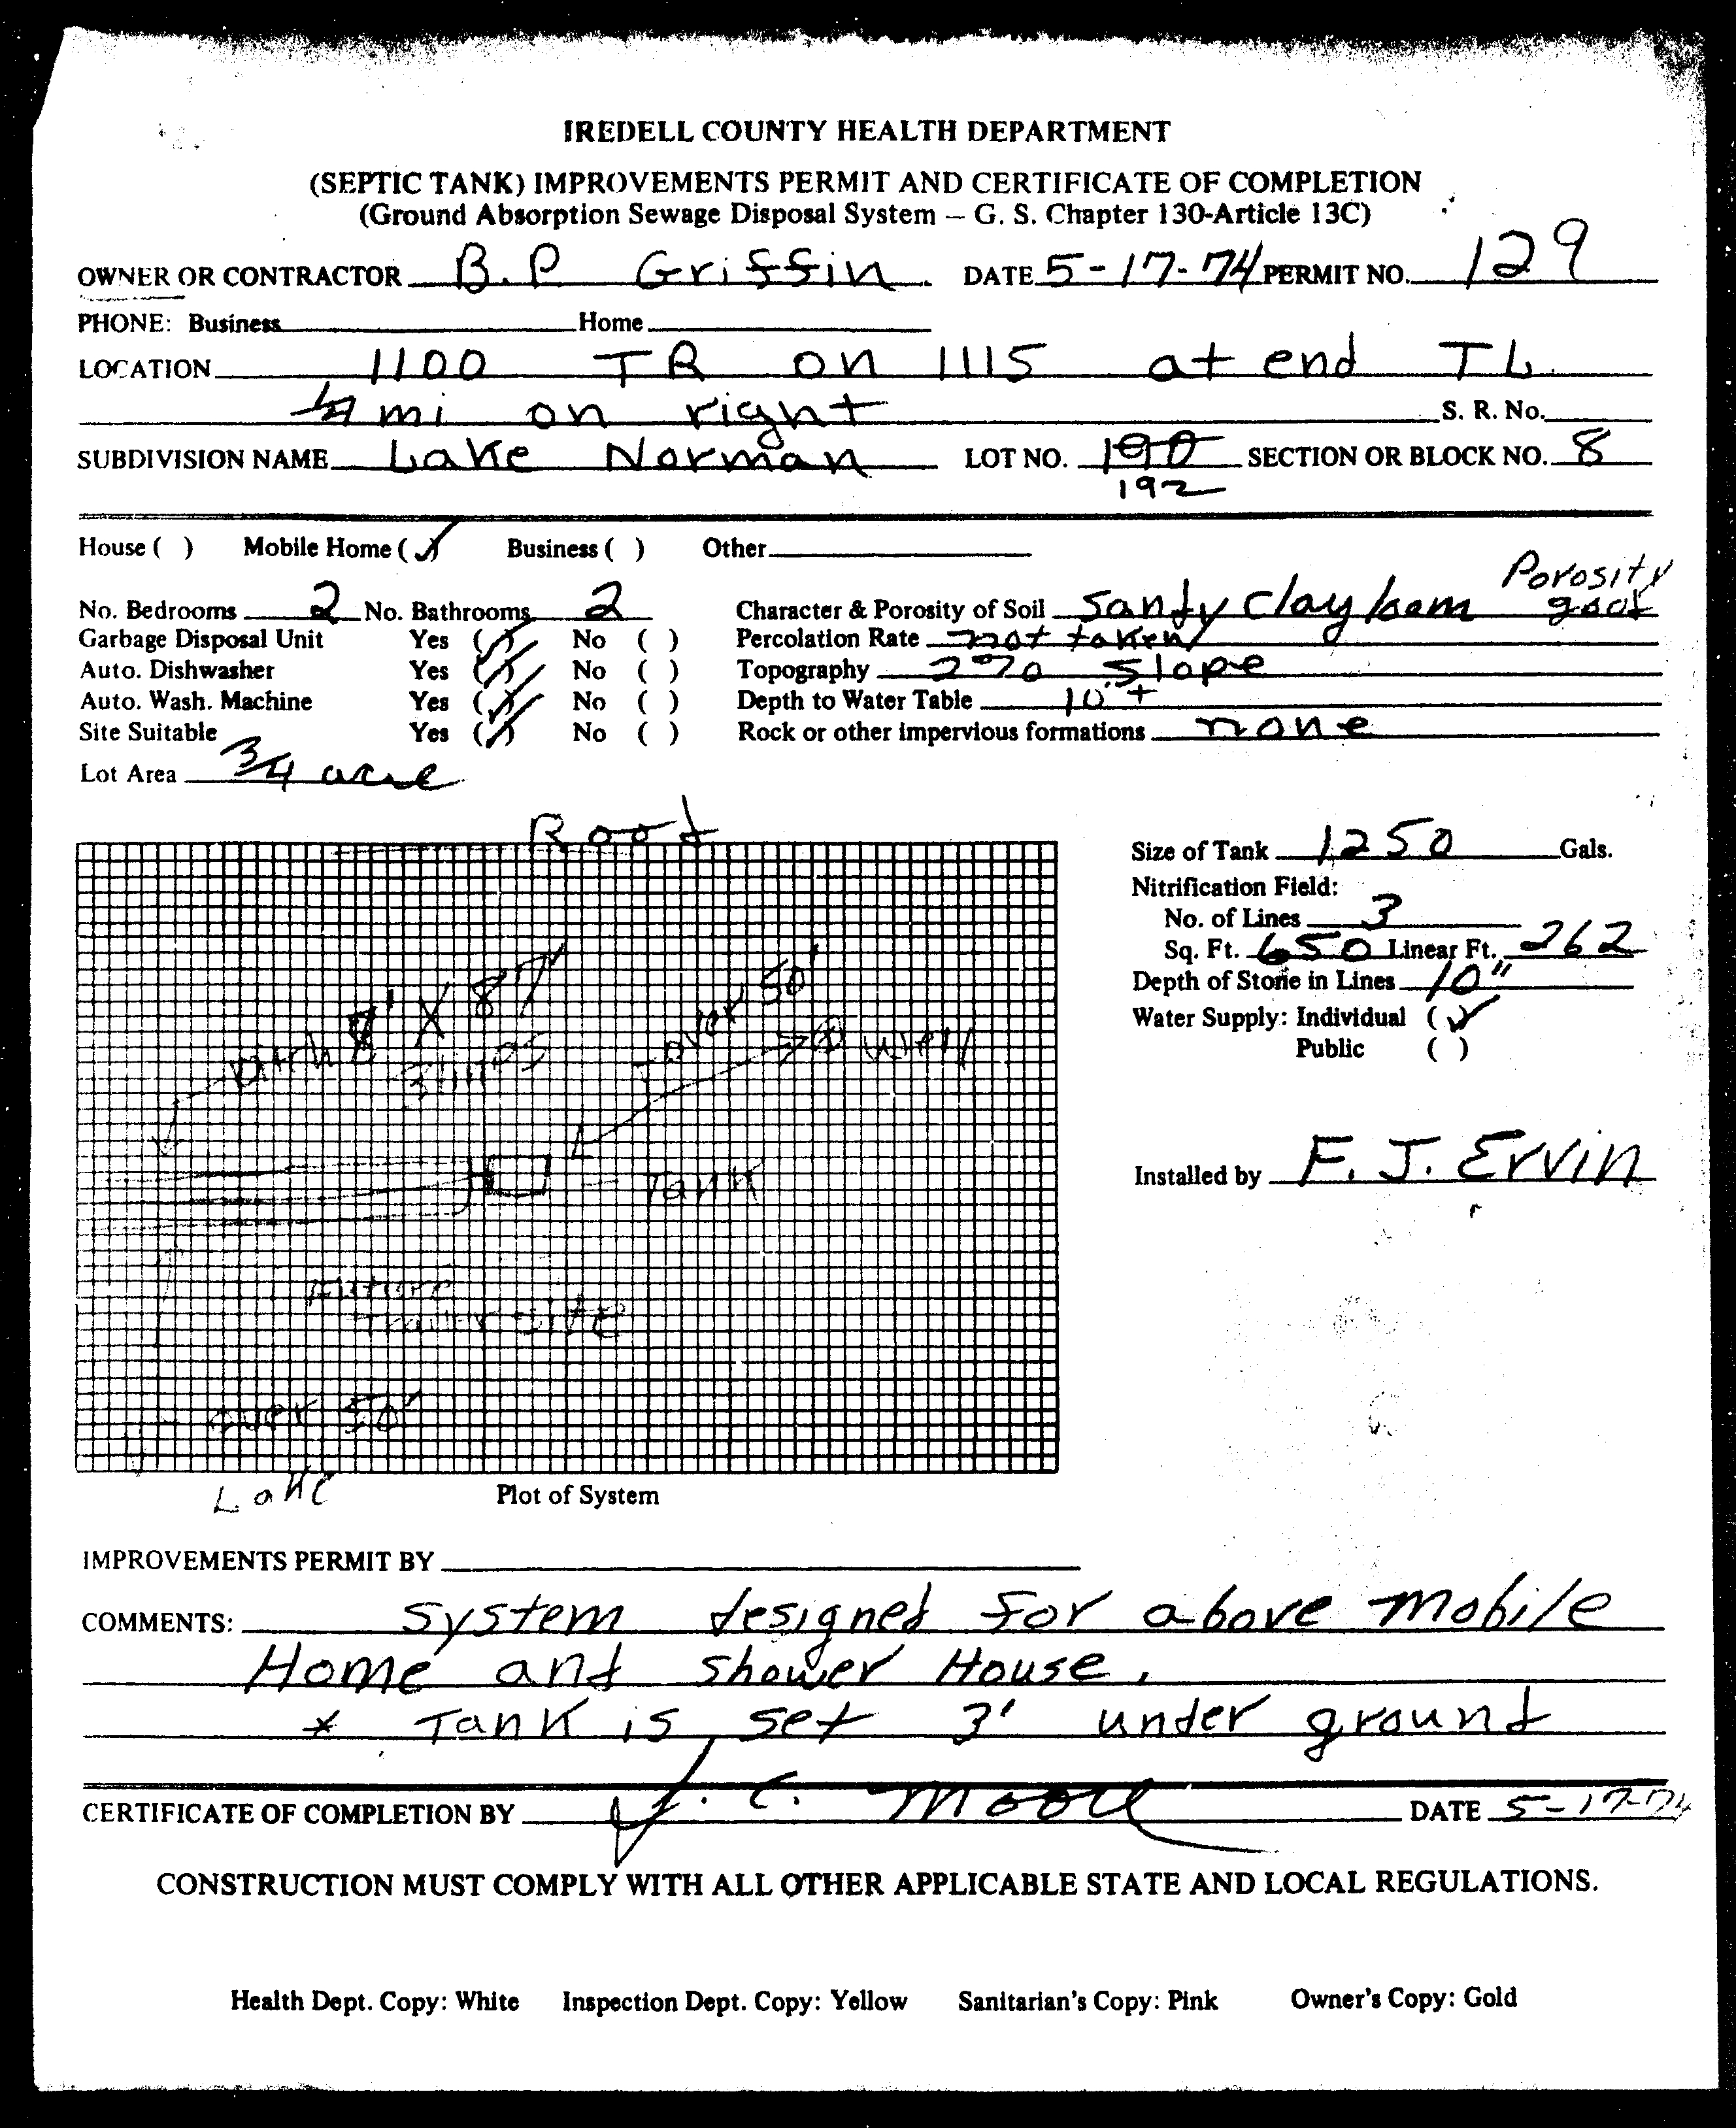 IREDELL COUNTY HEALTH DEPARTMENT
(SEPTIC TANK) IMPROVEMENTS PERMIT AND CERTIFICATE OF COMPLETION
(Ground Absorption Sewage Disposal System – G. S. Chapter 130-Article 13C)
OWNER OR CONTRACTOR B.P Griffin DATE 5-17-74 PERMIT NO. 129
PHONE: Business Home
LOCATION 1100 TR on 1115 at end TL
1/4 mi on right S. R. No.
SUBDIVISION NAME Lake Norman LOT NO. 190 SECTION OR BLOCK NO. 8
192
House ( ) Mobile Home (✓) Business ( ) Other
Porosity
No. Bedrooms 2 No. Bathrooms 2 Character & Porosity of Soil Sandy clay loam good
Garbage Disposal Unit Yes (✓) No ( ) Percolation Rate not taken
Auto. Dishwasher Yes (✓) No ( ) Topography 2% slope
Auto. Wash. Machine Yes (✓) No ( ) Depth to Water Table 10'+
Site Suitable Yes (✓) No ( ) Rock or other impervious formations none
Lot Area 3/4 acre
Road
Size of Tank 1250 Gals.
Nitrification Field:
No. of Lines 3
Sq. Ft. 650 Linear Ft. 262
Depth of Stone in Lines 10"
Water Supply: Individual (✓)
Public ( )
X 87'
3 lines
over 50'
well
Installed by F. J. Ervin
Tank
Future
Trailer site
over 50'
Lake
Plot of System
IMPROVEMENTS PERMIT BY
COMMENTS: System designed for above mobile
Home and shower House.
* Tank is set 3' under ground
CERTIFICATE OF COMPLETION BY J. C. Moore DATE 5-17-74
CONSTRUCTION MUST COMPLY WITH ALL OTHER APPLICABLE STATE AND LOCAL REGULATIONS.
Health Dept. Copy: White Inspection Dept. Copy: Yellow Sanitarian's Copy: Pink Owner's Copy: Gold